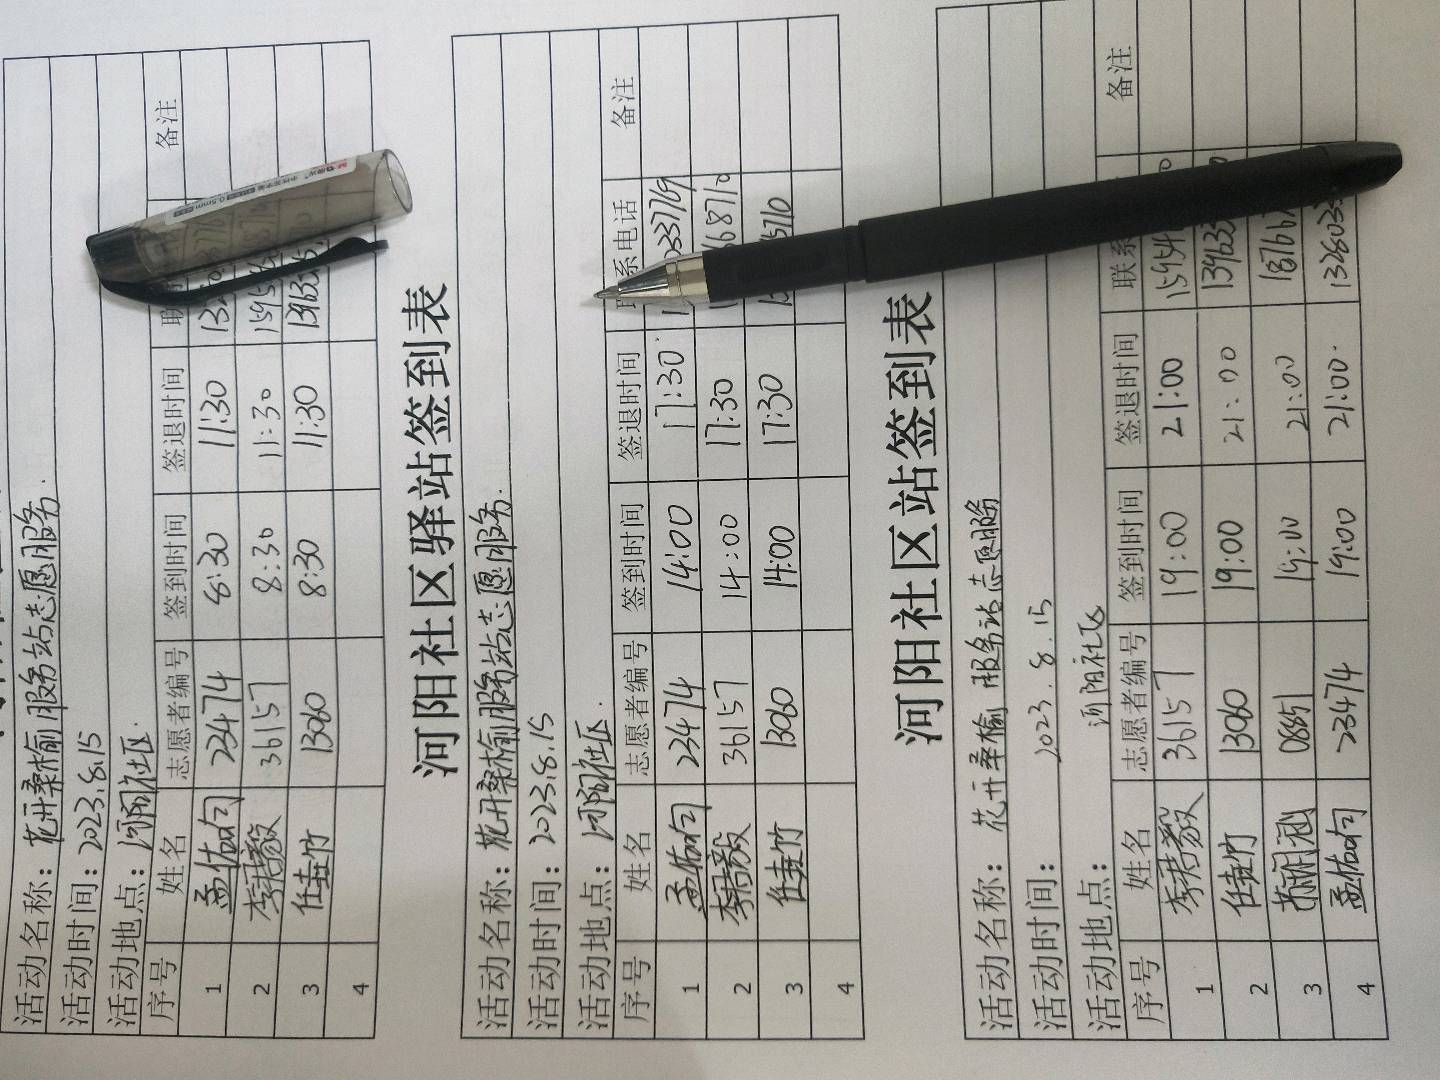 活动名称：花开桑榆服务站志愿服务.
活动时间：2023.8.15
活动地点：河阳社区.
序号 姓名 志愿者编号 签到时间 签退时间 备注
1 孟佑向 23474 8:30 11:30
2 李君毅 36157 8:30 11:30
3 任桂竹 13060 8:30 11:30
4
河阳社区驿站签到表
活动名称：花开桑榆服务站志愿服务.
活动时间：2023.8.15
活动地点：河阳社区.
序号 姓名 志愿者编号 签到时间 签退时间 系电话 备注
1 孟佑向 23474 14:00 17:30
2 李君毅 36157 14:00 17:30
3 任桂竹 13060 14:00 17:30
4
河阳社区站站签到表
活动名称：花开桑榆服务站志愿服务
活动时间：2023.8.15
活动地点：河阳社区
序号 姓名 志愿者编号 签到时间 签退时间 联系 备注
1 李君毅 36157 19:00 21:00
2 任桂竹 13060 19:00 21:00
3 0885 19:00 21:00
4 孟佑向 23474 19:00 21:00.